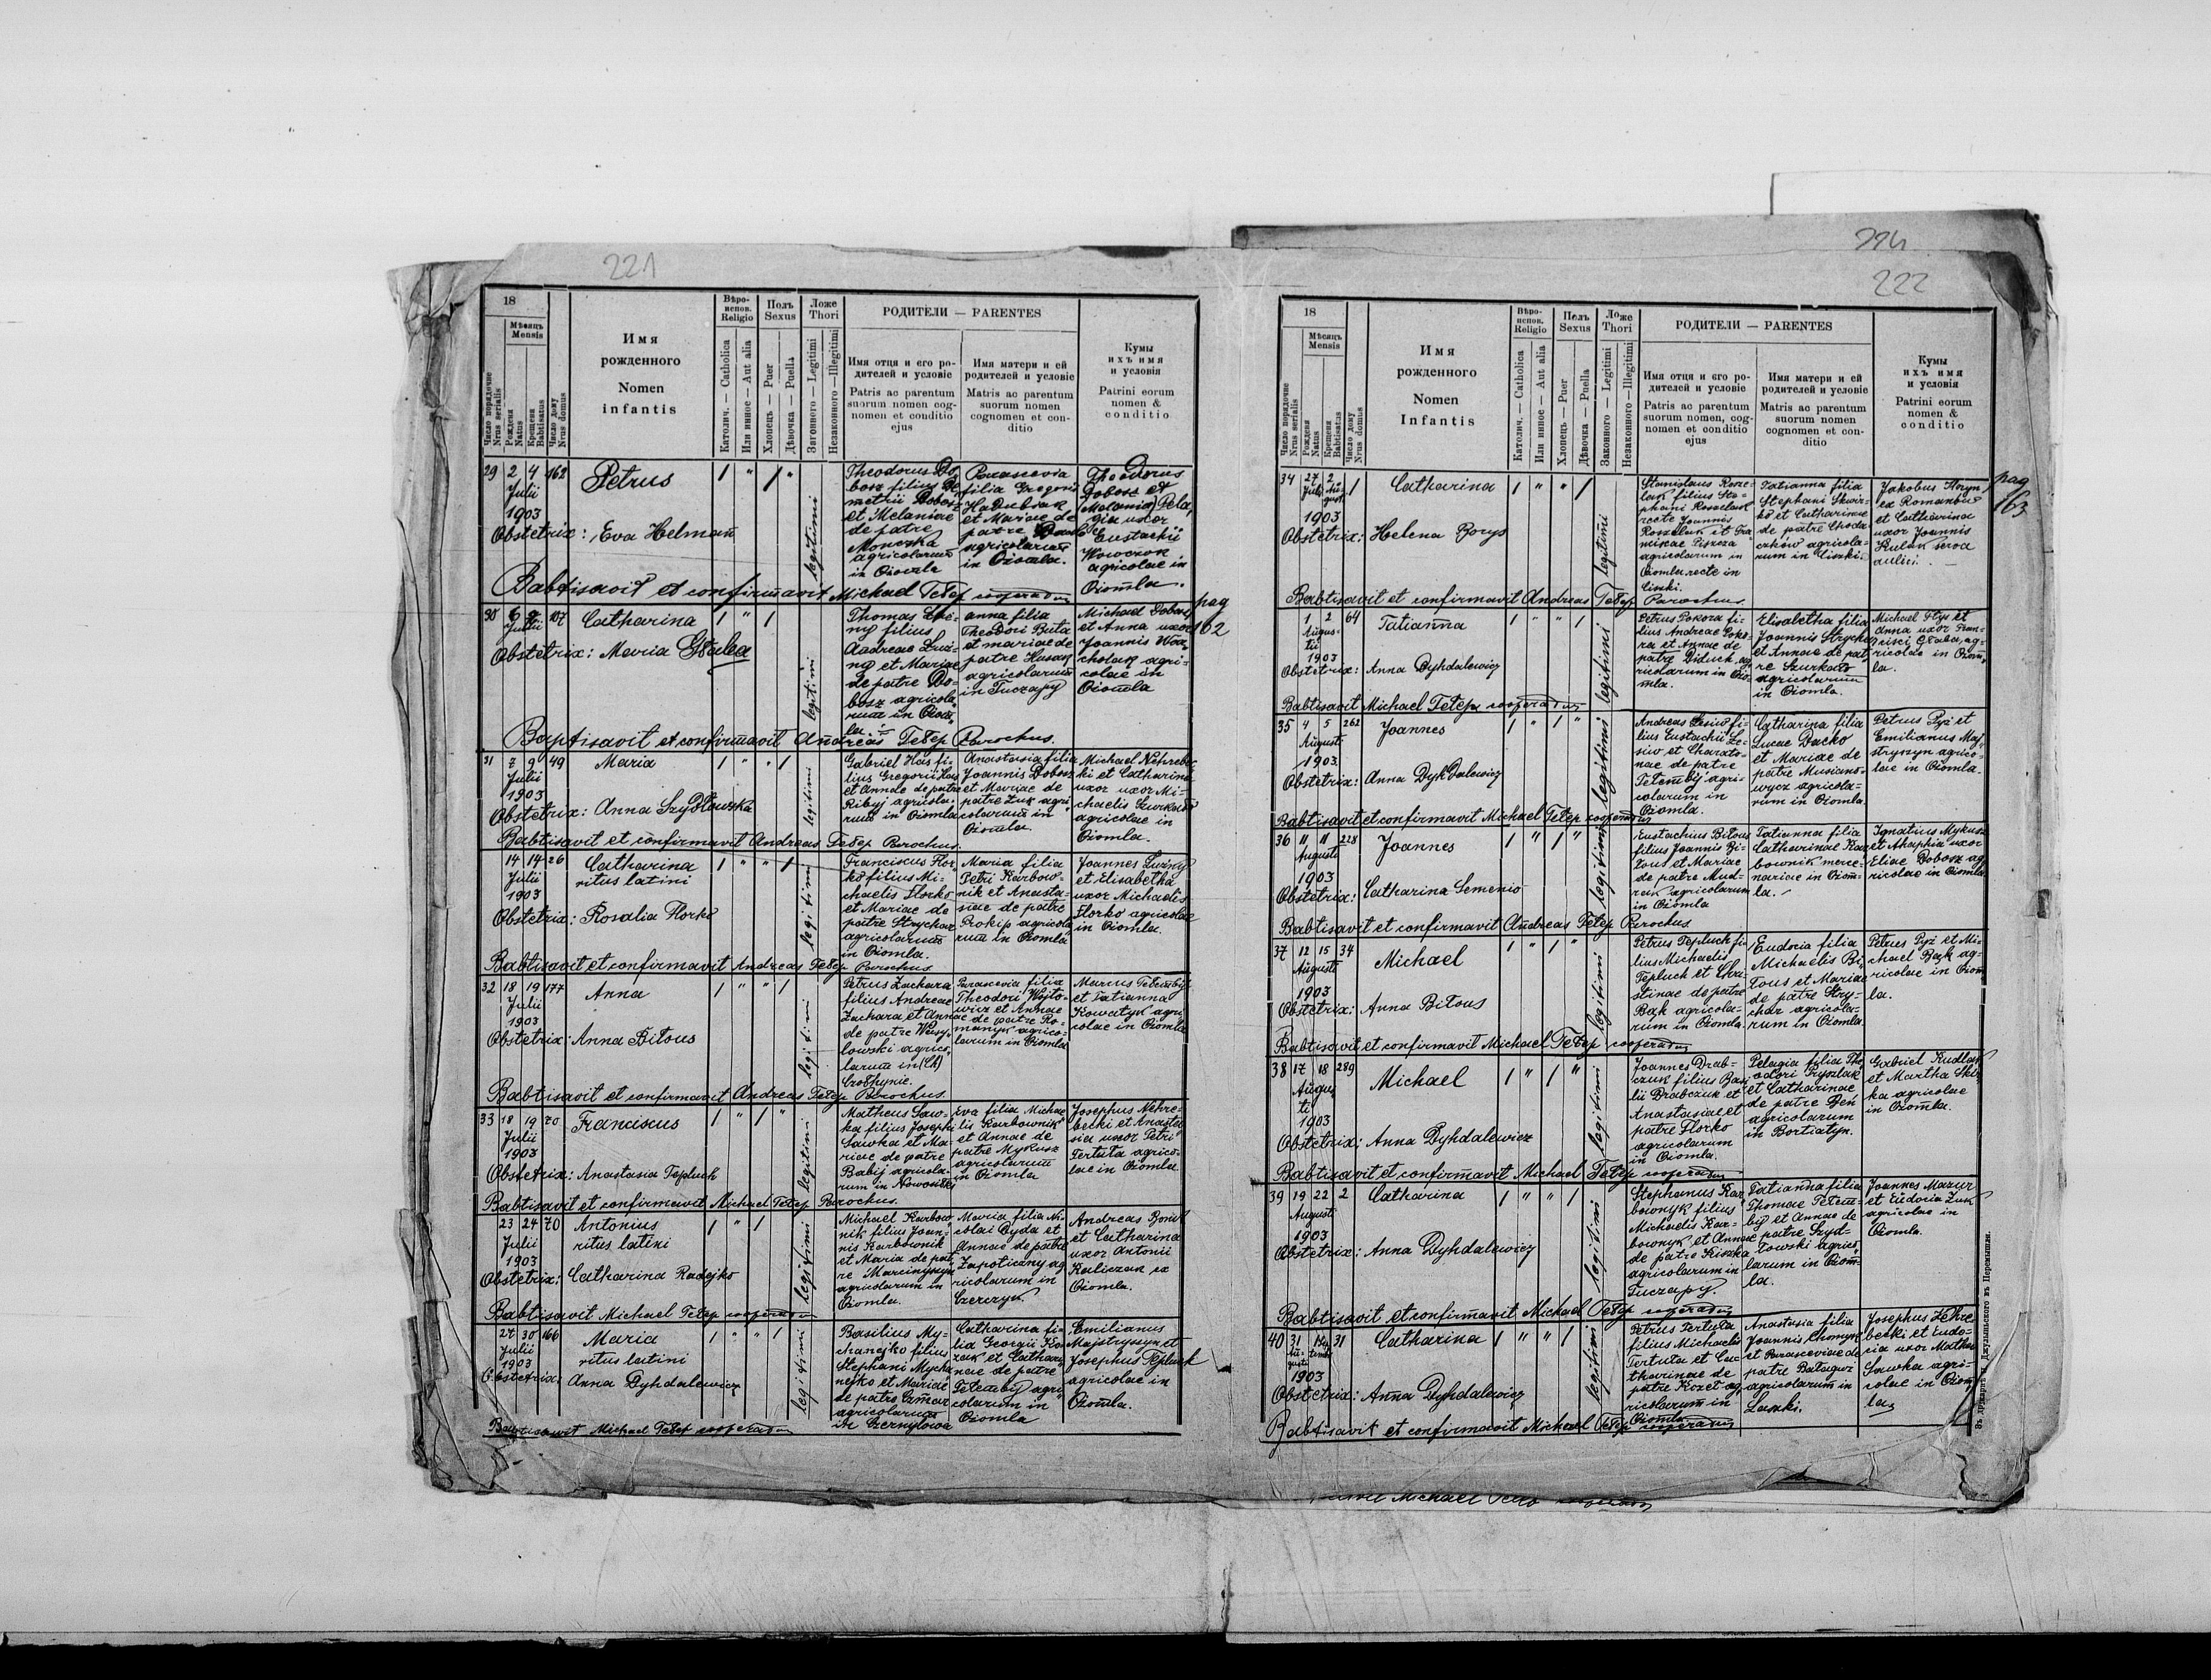 221
18
Мѣсяць
Mensis
Число порядочне
Nrus serialis
Рожденя
Natus
Крещеня
Babtisatus
Число дому
Nrus domus
Имя
рожденного
Nomen
infantis
Вѣро-
испов.
Religio
Католич. — Catholica
Или инное — Aut alia
Полъ
Sexus
Хлопець — Puer
Дѣвочка — Puella
Ложе
Thori
Законного — Legitimi
Незаконного — Illegitimi
РОДИТЕЛИ — PARENTES
Имя отця и его ро-
дителей и условіе
Patris ac parentum
suorum nomen cog-
nomen et conditio
ejus
Имя матери и ей
родителей и условіе
Matris ac parentum
suorum nomen
cognomen et con-
ditio
Кумы
ихъ имя
и условія
Patrini eorum
nomen &
conditio
29 2 4 162 Petrus 1 " 1 "
Julii
1903
Obstetrix: Eva Helman
legitimi
Theodorus Do-
bosz filius De-
metrii Dobosz
et Melaniae
de patre
Moneszka
agricolarum
in Ożomla
Parascevia
filia Gregorii
et Mariae de
patre
agricolarum
in Ożomla.
Theodorus
Dobosz et
Pela-
gia uxor
Eustachii
Woroczok
agricolae in
Ożomla.
Babtisavit et confirmavit Michael Тебер cooperator
pag
162
30 6 7 107 Catharina 1 " 1
Julii
Obstetrix: Maria
legitimi
Thomas Łuź-
ny filius
Andreae Łuź-
ny et Mariae
de patre Do-
bosz agricola-
rum in Ożom-
la.
Anna filia
Theodori Buta
et Mariae de
patre Husak
agricolarum
in Tuczapy
Michael Dobosz
et Anna uxor
Joannis Wor-
cholak agri-
colae in
Ożomla
Baptisavit et confirmavit Andreas Тебер Parochus.
31 7 9 49 Maria 1 " " 1
Julii
1903
Obstetrix: Anna Szydłowska
legitimi
Gabriel Has fi-
lius Gregorii Has
et Annae de patre
Ribyj agricola-
rum in Ożomla
Anastasia filia
Joannis Dobosz
et Mariae de
patre Żuk agri-
colarum in
Ożomla.
Michael Nehrebec-
ki et Catharina
uxor uxor Mi-
chaelis Szurkało
agricolae in
Ożomla.
Babtisavit et confirmavit Andreas Тебер Parochus.
14 14 26 Catharina 1 " " 1
Julii ritus latini
1903
Obstetrix: Rosalia Florko
legitimi
Franciscus Flor-
ko filius Mi-
chaelis Florko
et Mariae de
patre Strychar
agricolarum
in Ożomla.
Maria filia
Petri Karbow-
nik et Anasta-
siae de patre
Prokip agricola-
rum in Ożomla
Joannes Łuźny
et Elisabetha
uxor Michaelis
Florko agricolae
in Ożomla.
Babtisavit et confirmavit Andreas Тебер Parochus
32 18 19 177 Anna 1 " " 1
Julii
1903
Obstetrix: Anna Biłous
legitimi
Petrus Zachara
filius Andreae
Zachara et Annae
de patre Wasy-
lowski agrico-
larum in (Ch)
Crothynie.
Parascevia filia
Theodori Wojto-
wicz et Annae
de patre Ro-
manyk agrico-
larum in Ożomla
Marcus Tetembij
et Tatianna
Kowalyk agri-
colae in Ożomla
Babtisavit et confirmavit Andreas Тебер Parochus.
33 18 19 70 Franciscus 1 " 1 "
Julii
1903
Obstetrix: Anastasia Tepluch
legitimi
Matheus Saw-
ka filius Josephi
Sawka et Ma-
riae de patre
Babij agricola-
rum in Nowosiłki
Eva filia Michae-
lis Karbownik
et Annae de
patre Mykusz
agricolarum
in Ożomla
Josephus Nehre-
becki et Anasta-
sia uxor Petri
Tertuta agrico-
lae in Ożomla
Babtisavit et confirmavit Michael Тебер Parochus.
23 24 70 Antonius 1 " 1
Julii ritus latini
1903
Obstetrix: Catharina Radejko
legitimi
Michael Karbow-
nik filius Joan-
nis Karbownik
et Maria de pat-
re Marcinyszyn
agricolarum in
Ożomla.
Maria filia Ni-
colai Cyda et
Annae de patre
Zapoticzny ag-
ricolarum in
Czerczyk
Andreas
et Catharina
uxor Antonii
Kaliczak ex
Ożomla.
Babtisavit Michael Тебер cooperator
27 30 166 Maria 1 " " 1
Julii ritus latini
1903
Obstetrix: Anna Dyhdalewicz
legitimi
Basilius My-
chanejko filius
Stephani Mycha-
nejko et Mariae
de patre
agricolarum
in Czernylawa
Catharina fi-
lia Georgii Ko-
zak et Cathari-
nae de patre
Tetembij agri-
colarum in
Ożomla
Emilianus
Majstryszyn et
Josephus Tepluch
agricolae in
Ożomla.
Baptisavit Michael Тебер cooperator
224
222
18
Мѣсяць
Mensis
Число порядочне
Nrus serialis
Рожденя
Natus
Крещеня
Babtisatus
Число дому
Nrus domus
Имя
рожденного
Nomen
Infantis
Вѣро-
испов.
Religio
Католич. — Catholica
Или инное — Aut alia
Полъ
Sexus
Хлопець — Puer
Дѣвочка — Puella
Ложе
Thori
Законного — Legitimi
Незаконного — Illegitimi
РОДИТЕЛИ — PARENTES
Имя отця и его ро-
дителей и условіе
Patris ac parentum
suorum nomen, cog-
nomen et conditio
ejus
Имя матери и ей
родителей и условіе
Matris ac parentum
suorum nomen
cognomen et con-
ditio
Кумы
ихъ имя
и условія
Patrini eorum
nomen &
conditio
pag
163
34 27 2 1 Catharina 1 " " 1
Julii Au-
gusti
1903
Obstetrix: Helena Borys
legitimi
Stanislaus Rosze-
lak filius Ste-
phani Roszelak
recte Joannis
Roszelak et Fra-
nciscae Piszcza
agricolarum in
Ożomla recte in
Liszki.
Tatianna filia
Stephani Skwir-
ko et Catharinae
de patre Choda-
czków agricola-
rum in Liszki.
Jakobus Hryn
ex Romanówd
et Catharina
uxor Joannis
Kulak
aulici.
Babtisavit et confirmavit Andreas Тебер Parochus.
1 2 64 Tatianna 1 " " 1
Augus-
ti
1903
Obstetrix: Anna Dyhdalewicz
legitimi
Petrus Pokora fi-
lius Andreae Poko-
ra et Annae de
patre Diduch ag-
ricolarum in Ożo-
mla.
Elisabetha filia
Joannis Strychar
et Annae de pat-
re Szurkało
agricolarum
in Ożomla.
Michael Hys et
Anna uxor Fran-
cisci Chaba ag-
ricolae in Ożom-
la.
Babtisavit Michael Тебер cooperator
35 4 5 262 Joannes 1 " 1 "
Augusti
1903.
Obstetrix: Anna Dyhdalewicz
legitimi
Andreas Lesiw fi-
lius Eustachii Le-
siw et Charato-
nae de patre
Tetembij agri-
colarum in
Ożomla.
Catharina filia
Lucae Dacko
et Mariae de
patre Musiano-
wycz agricola-
rum in Ożomla.
Petrus Pyż et
Emilianus Maj-
stryszyn agrico-
lae in Ożomla.
Babtisavit et confirmavit Michael Тебер cooperator
36 11 11 228 Joannes 1 " 1 "
Augusti
1903
Obstetrix: Catharina Semenio
legitimi
Eustachius Biłous
filius Joannis Bi-
łous et Mariae
de patre Mud-
rak agricolarum
in Ożomla
Tatianna filia
Catharinae Kar-
bownik merce-
nariae in Ożom-
la.
Ignatius Mykusz
et Ahaphia uxor
Eliae Dobosz ag-
ricolae in Ożomla
Babtisavit et confirmavit Andreas Тебер Parochus.
37 12 15 34 Michael 1 " 1 "
Augusti
1903
Obstetrix: Anna Biłous
legitimi
Petrus Tepluch fi-
lius Michaelis
Tepluch et Chri-
stinae de patre
Bąk agricola-
rum in Ożomla.
Eudocia filia
Michaelis Bi-
łous et Mariae
de patre Stry-
char agricola-
rum in Ożomla.
Petrus Pyż et Mi-
chael Bąk ag-
ricolae in Ożom-
la.
Babtisavit et confirmavit Michael Тебер cooperator
38 17 18 289 Michael 1 " 1 "
Augus-
ti
1903
Obstetrix: Anna Dyhdalewicz
legitimi
Joannes Drab-
czuk filius Basi-
lii Drabczuk et
Anastasiae et
patre Florko
agricolarum
in Ożomla.
Pelagia filia The-
odori Pryszlak
et Catharinae
de patre Deń
agricolarum
in Bortiatyn.
Gabriel Kudlak
et Martha
agricolae
in Ożomla.
Babtisavit et confirmavit Michael Тебер cooperator
39 19 22 2 Catharina 1 " " 1
Augusti
1903
Obstetrix: Anna Dyhdalewicz
legitimi
Stephanus Kar-
bownyk filius
Michaelis Kar-
bownyk et Annae
de patre Kiszka
agricolarum in
Tuczapy.
Tatianna filia
Thomae Tetem-
bij et Annae de
patre Szyd-
łowski agrico-
larum in Ożom-
la.
Joannes Mazur
et Eudoria Żuk
agricolae in
Ożomla.
Babtisavit et confirmavit Michael Тебер cooperator
40 31 31 Catharina 1 " " 1
Au-
gusti
1903
Obstetrix: Anna Dyhdalewicz
legitimi
Petrus Tertuta
filius Michaelis
Tertuta et Ca-
tharinae de
patre Kozet ag-
ricolarum in
Ożomla
Anastasia filia
Joannis Chomyn
et Parasceviae de
patre Bałagwi
agricolarum in
Laszki.
Josephus Nehre-
becki et Eudo-
cia uxor Mathei
Sawka agri-
colae in Ożom-
la,
Babtisavit et confirmavit Michael Тебер cooperator
Зъ друкарнѣ Джулыньского въ Перемышли.